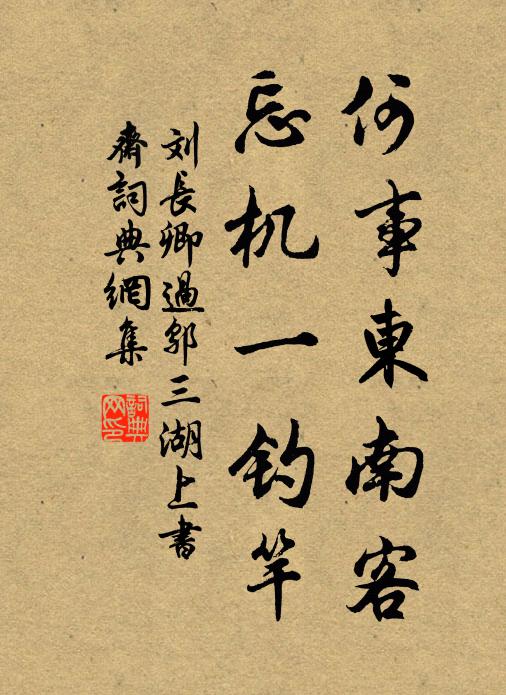 何事東南客
忘机一钓竿
刘長卿過鄔三湖上書
齋詞典網集
詞典
网印